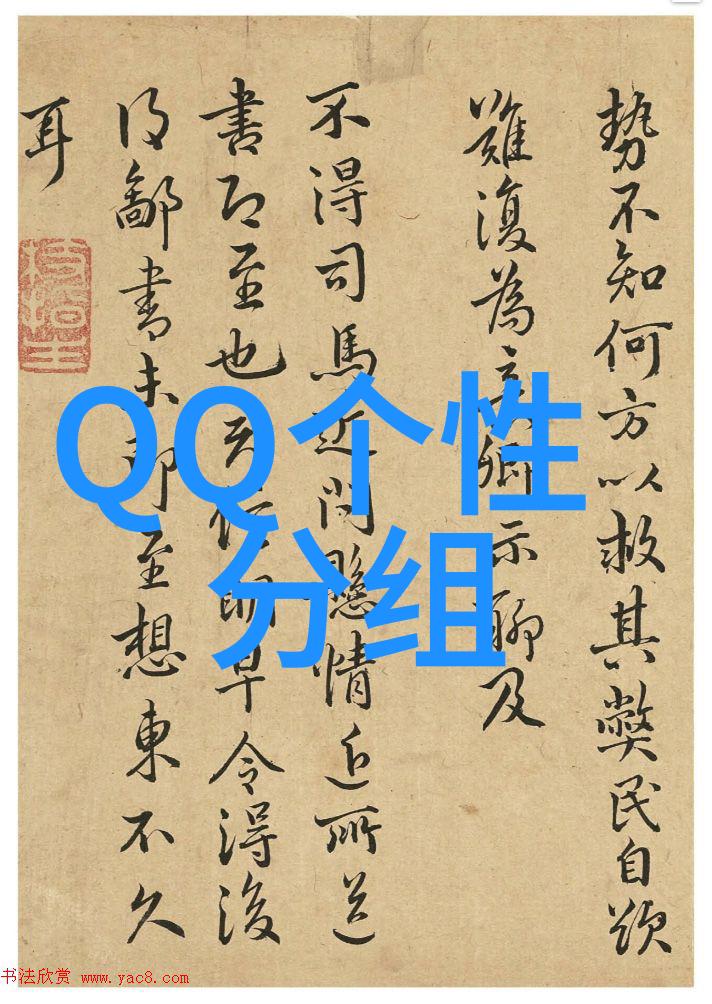 勢不知何方以救其弊民自欲
難復為卿示聊及
不得司馬近問懸情近所送
書即至也早令得後
得鄙書未即至想東不久
耳
QQ个性
分组
书法欣赏 www.yac8.com